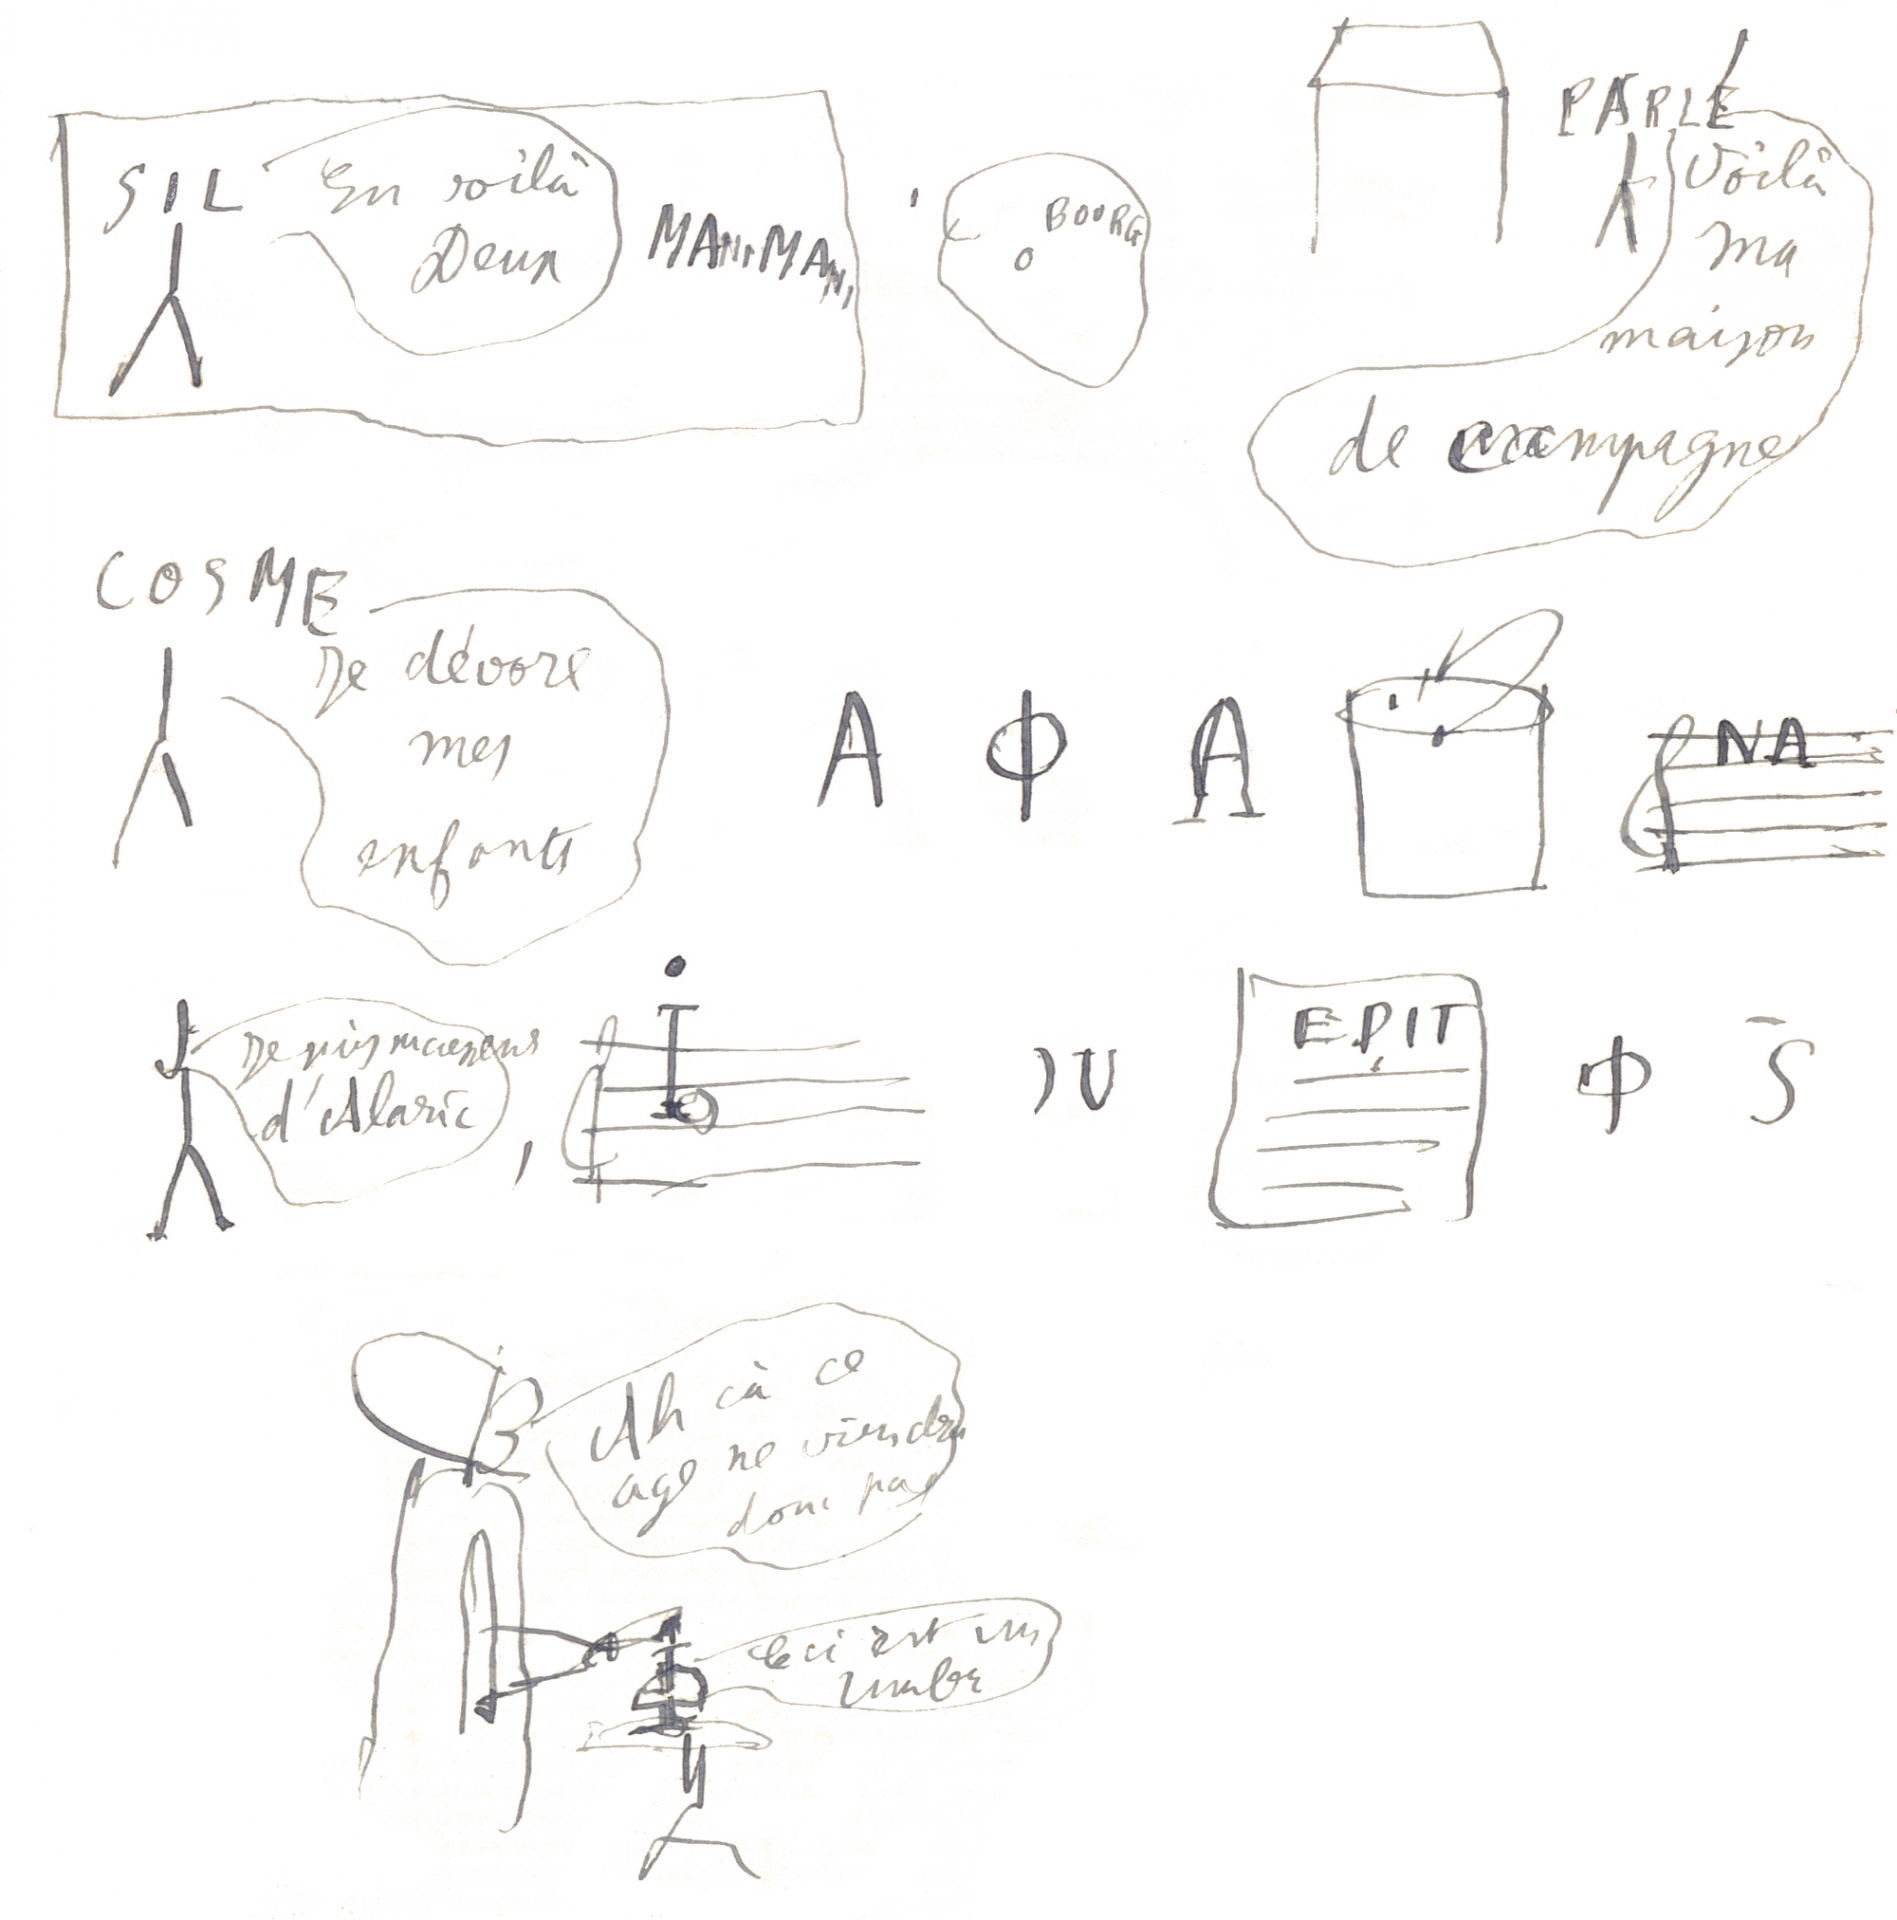 SIL
En voilà
Deux
MANIMANI
BOURG
PARLE
Voilà
ma
maison
de campagne
COSME
Je dévore
mes
enfants
A Φ A
NA
d'Alaric
,
I
U
EPIT
Φ S
Ah cà ce
age ne viendra
donc pas
B
Ceci est un